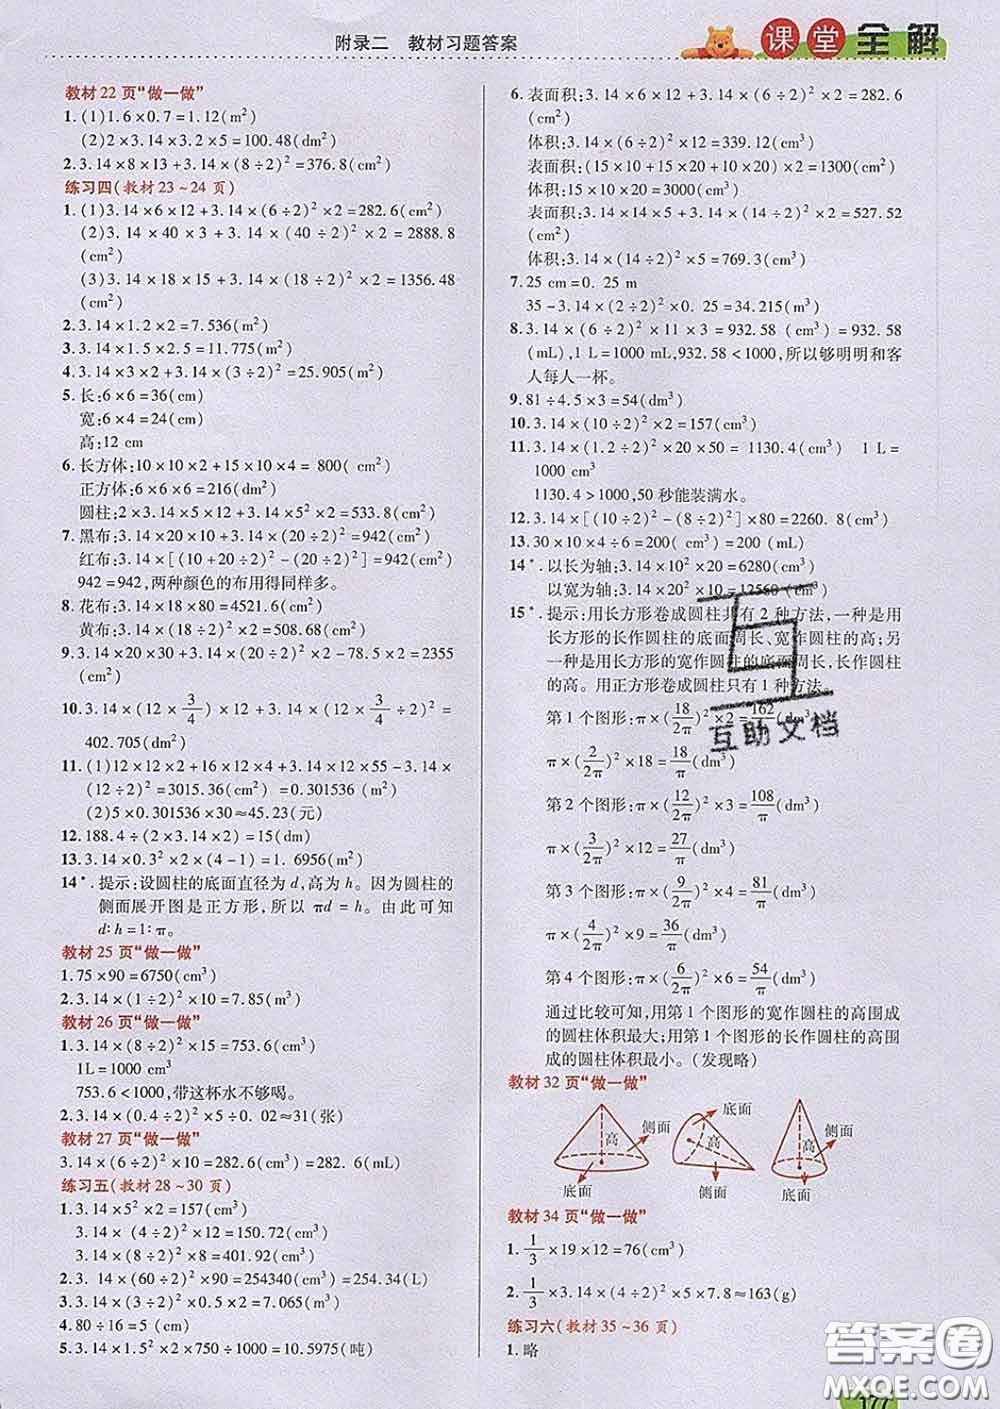 附录二 教材习题答案
课堂全解
教材22页“做一做”
1.(1)1.6×0.7=1.12(m²)
(2)2×3.14×3.2×5=100.48(dm²)
2.3.14×8×13+3.14×(8÷2)²=376.8(cm²)
练习四(教材23~24页)
1.(1)3.14×6×12+3.14×(6÷2)²×2=282.6(cm²)
(2)3.14×40×3+3.14×(40÷2)²×2=2888.8
(cm²)
(3)3.14×18×15+3.14×(18÷2)²×2=1356.48
(cm²)
2.3.14×1.2×2=7.536(m²)
3.3.14×1.5×2.5=11.775(m²)
4.3.14×3×2+3.14×(3÷2)²=25.905(m²)
5.长:6×6=36(cm)
宽:6×4=24(cm)
高:12 cm
6.长方体:10×10×2+15×10×4=800(cm²)
正方体:6×6×6=216(dm²)
圆柱:2×3.14×5×12+3.14×5²×2=533.8(cm²)
7.黑布:3.14×20×10+3.14×(20÷2)²=942(cm²)
红布:3.14×[(10+20÷2)²-(20÷2)²]=942(cm²)
942=942,两种颜色的布用得同样多。
8.花布:3.14×18×80=4521.6(cm²)
黄布:3.14×(18÷2)²×2=508.68(cm²)
9.3.14×20×30+3.14×(20÷2)²×2-78.5×2=2355
(cm²)
10.3.14×(12×3/4)×12+3.14×(12×3/4÷2)²=
402.705(dm²)
11.(1)12×12×2+16×12×4+3.14×12×55-3.14×
(12÷2)²=3015.36(cm²)=0.301536(m²)
(2)5×0.301536×30≈45.23(元)
12.188.4÷(2×3.14×2)=15(dm)
13.3.14×0.3²×2×(4-1)=1.6956(m²)
14*.提示:设圆柱的底面直径为d,高为h。因为圆柱的
侧面展开图是正方形,所以πd=h。由此可知
d∶h=1∶π。
教材25页“做一做”
1.75×90=6750(cm³)
2.3.14×(1÷2)²×10=7.85(m³)
教材26页“做一做”
1.3.14×(8÷2)²×15=753.6(cm³)
1L=1000 cm³
753.6<1000,带这杯水不够喝。
2.3.14×(0.4÷2)²×5÷0.02≈31(张)
教材27页“做一做”
3.14×(6÷2)²×10=282.6(cm³)=282.6(mL)
练习五(教材28~30页)
1.3.14×5²×2=157(cm³)
3.14×(4÷2)²×12=150.72(cm³)
3.14×(8÷2)²×8=401.92(cm³)
2.3.14×(60÷2)²×90=254340(cm³)=254.34(L)
3.3.14×(3÷2)²×0.5×2=7.065(m³)
4.80÷16=5(cm)
5.3.14×1.5²×2×750÷1000=10.5975(吨)
6.表面积:3.14×6×12+3.14×(6÷2)²×2=282.6
(cm²)
体积:3.14×(6÷2)²×12=339.12(cm³)
表面积:(15×10+15×20+10×20)×2=1300(cm²)
体积:15×10×20=3000(cm³)
表面积:3.14×14×5+3.14×(14÷2)²×2=527.52
(cm²)
体积:3.14×(14÷2)²×5=769.3(cm³)
7.25 cm=0.25 m
35-3.14×(2÷2)²×0.25=34.215(m³)
8.3.14×(6÷2)²×11×3=932.58(cm³)=932.58
(mL),1 L=1000 mL,932.58<1000,所以够明明和客
人每人一杯。
9.81÷4.5×3=54(dm³)
10.3.14×(10÷2)²×2=157(cm³)
11.3.14×(1.2÷2)²×20×50=1130.4(cm³) 1 L=
1000 cm³
1130.4>1000,50秒能装满水。
12.3.14×[(10÷2)²-(8÷2)²]×80=2260.8(cm³)
13.30×10×4÷6=200(cm³)=200(mL)
14*.以长为轴:3.14×10²×20=6280(cm³)
以宽为轴:3.14×20²×10=12560(cm³)
15*.提示:用长方形卷成圆柱共有2种方法,一种是用
长方形的长作圆柱的底面周长、宽作圆柱的高;另
一种是用长方形的宽作圆柱的底面周长,长作圆柱
的高。用正方形卷成圆柱只有1种方法。
第1个图形:π×(18/2π)²×2=162/π(dm³)
π×(2/2π)²×18=18/π(dm³)
第2个图形:π×(12/2π)²×3=108/π(dm³)
π×(3/2π)²×12=27/π(dm³)
第3个图形:π×(9/2π)²×4=81/π(dm³)
π×(4/2π)²×9=36/π(dm³)
第4个图形:π×(6/2π)²×6=54/π(dm³)
通过比较可知,用第1个图形的宽作圆柱的高围成
的圆柱体积最大;用第1个图形的长作圆柱的高围
成的圆柱体积最小。(发现略)
教材32页“做一做”
高 侧面 底面
底面 高 侧面
侧面 高 底面
教材34页“做一做”
1.1/3×19×12=76(cm³)
2.1/3×3.14×(4÷2)²×5×7.8≈163(g)
练习六(教材35~36页)
1.略
互助文档
答案圈
MXQE.COM
177